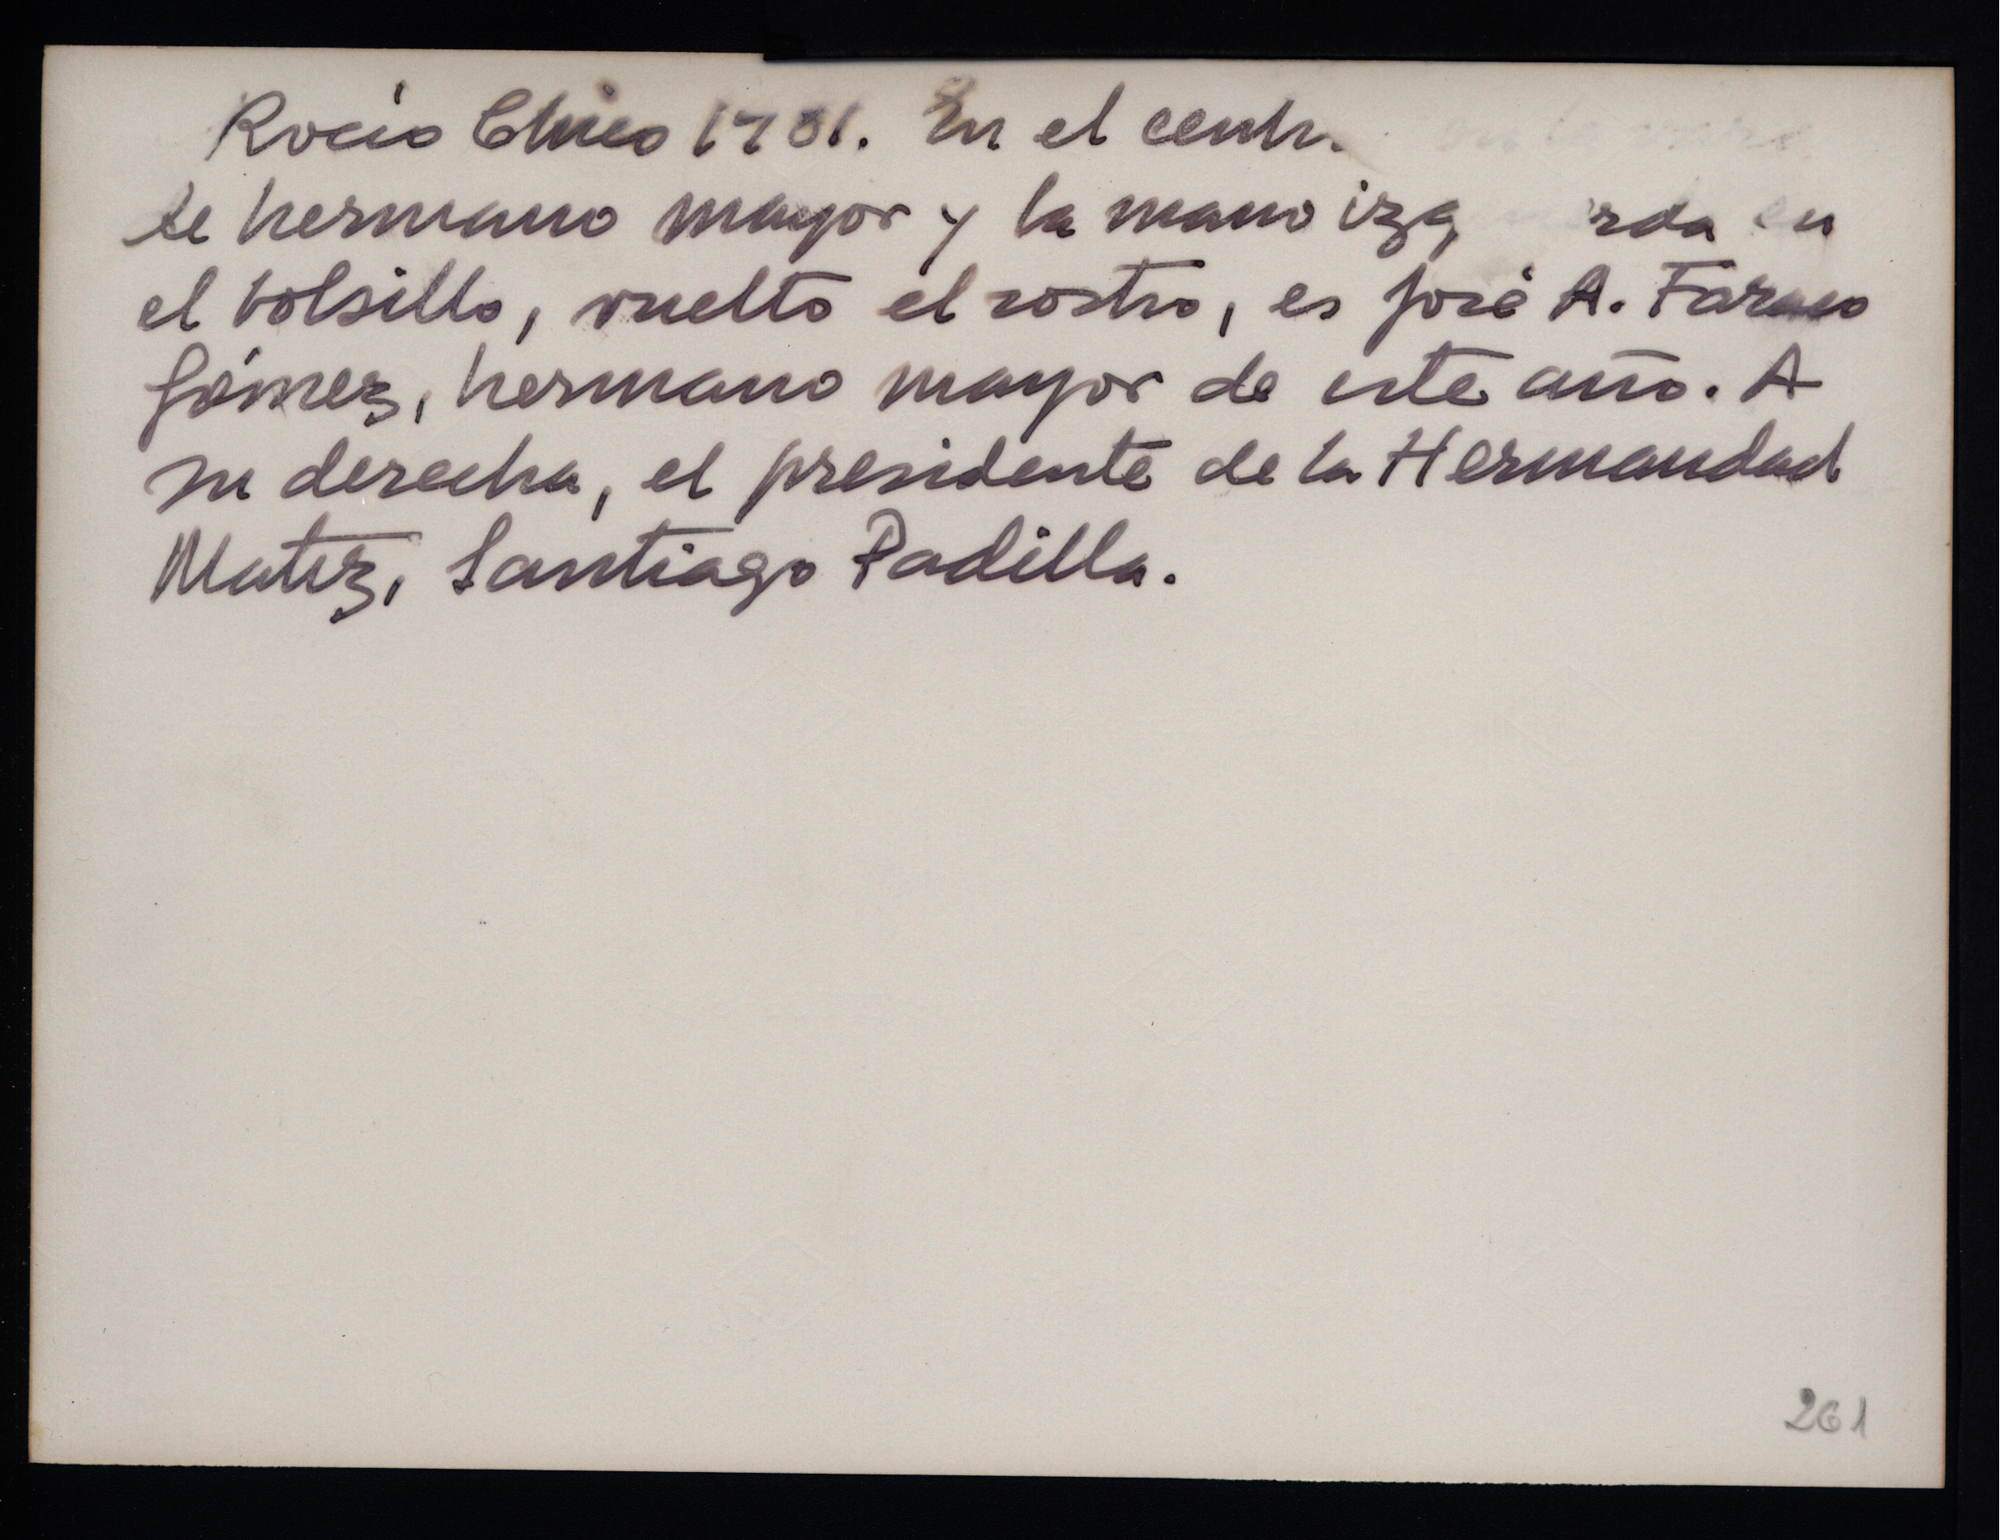 Rocío Chico 1981. En el centr.
de hermano mayor y la mano izq rda en
el bolsillo, vuelto el rostro, es José A. Faraco
Gómez, hermano mayor de este año. A
su derecha, el presidente de la Hermandad
Matriz, Santiago Padilla.
261